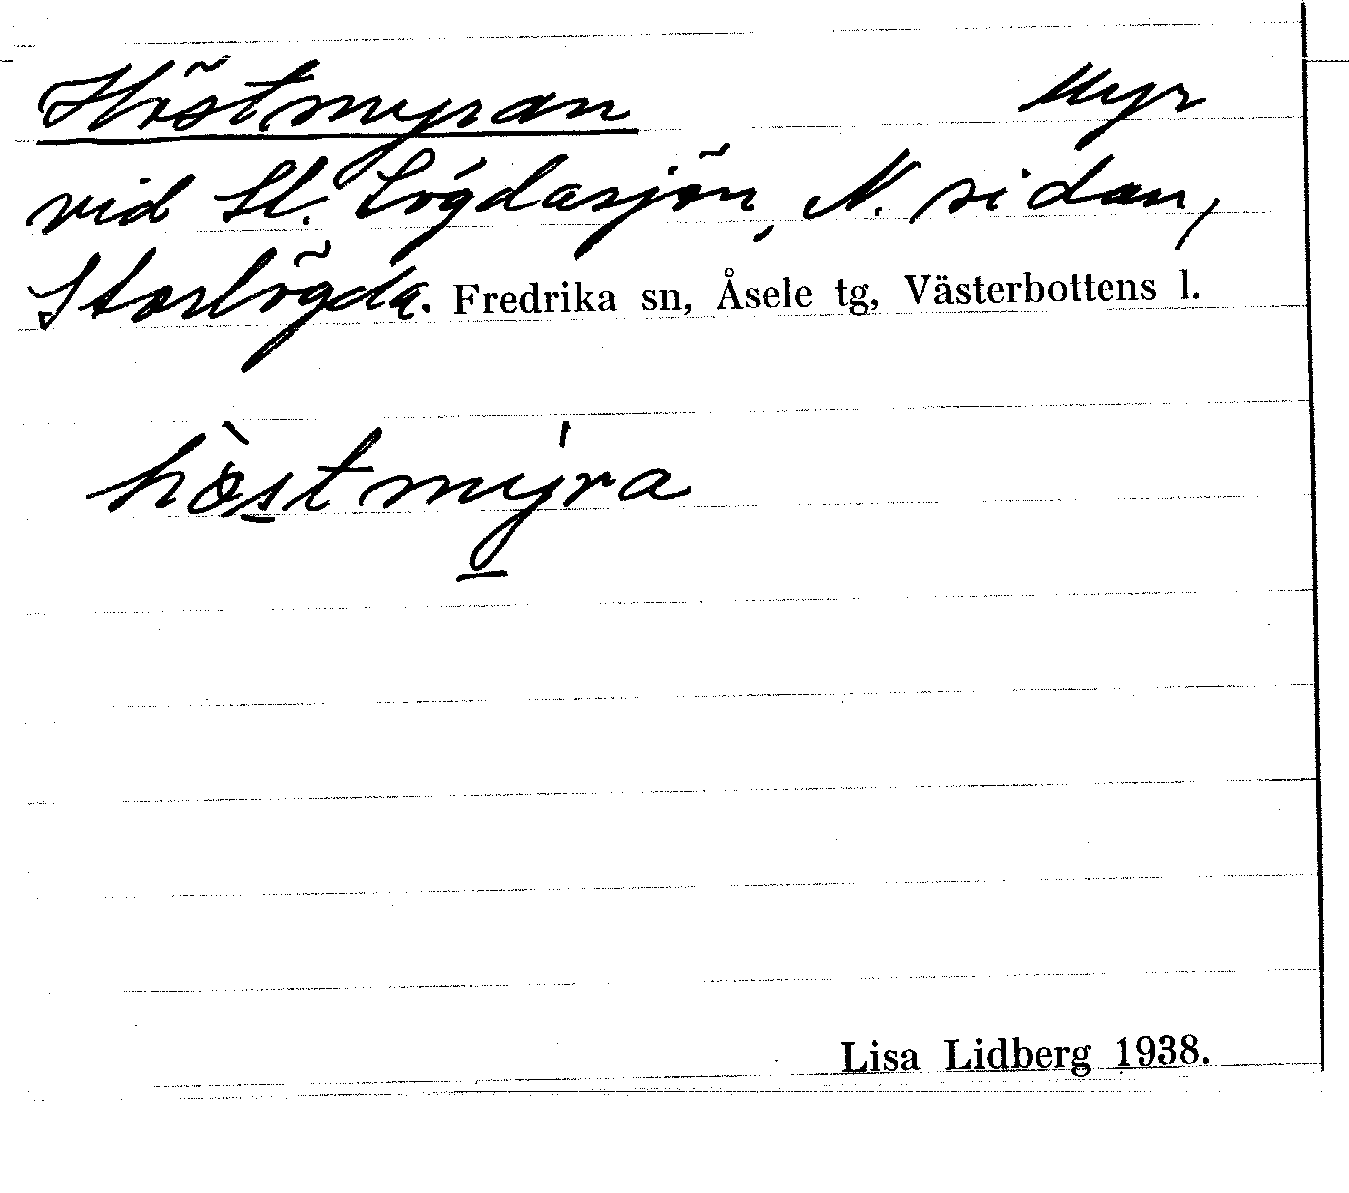 Höstmyran Myr
vid St. Lögdasjön, N. sidan,
Storlögda. Fredrika sn, Åsele tg, Västerbottens l.
hòstmy̲ra
Lisa Lidberg 1938.